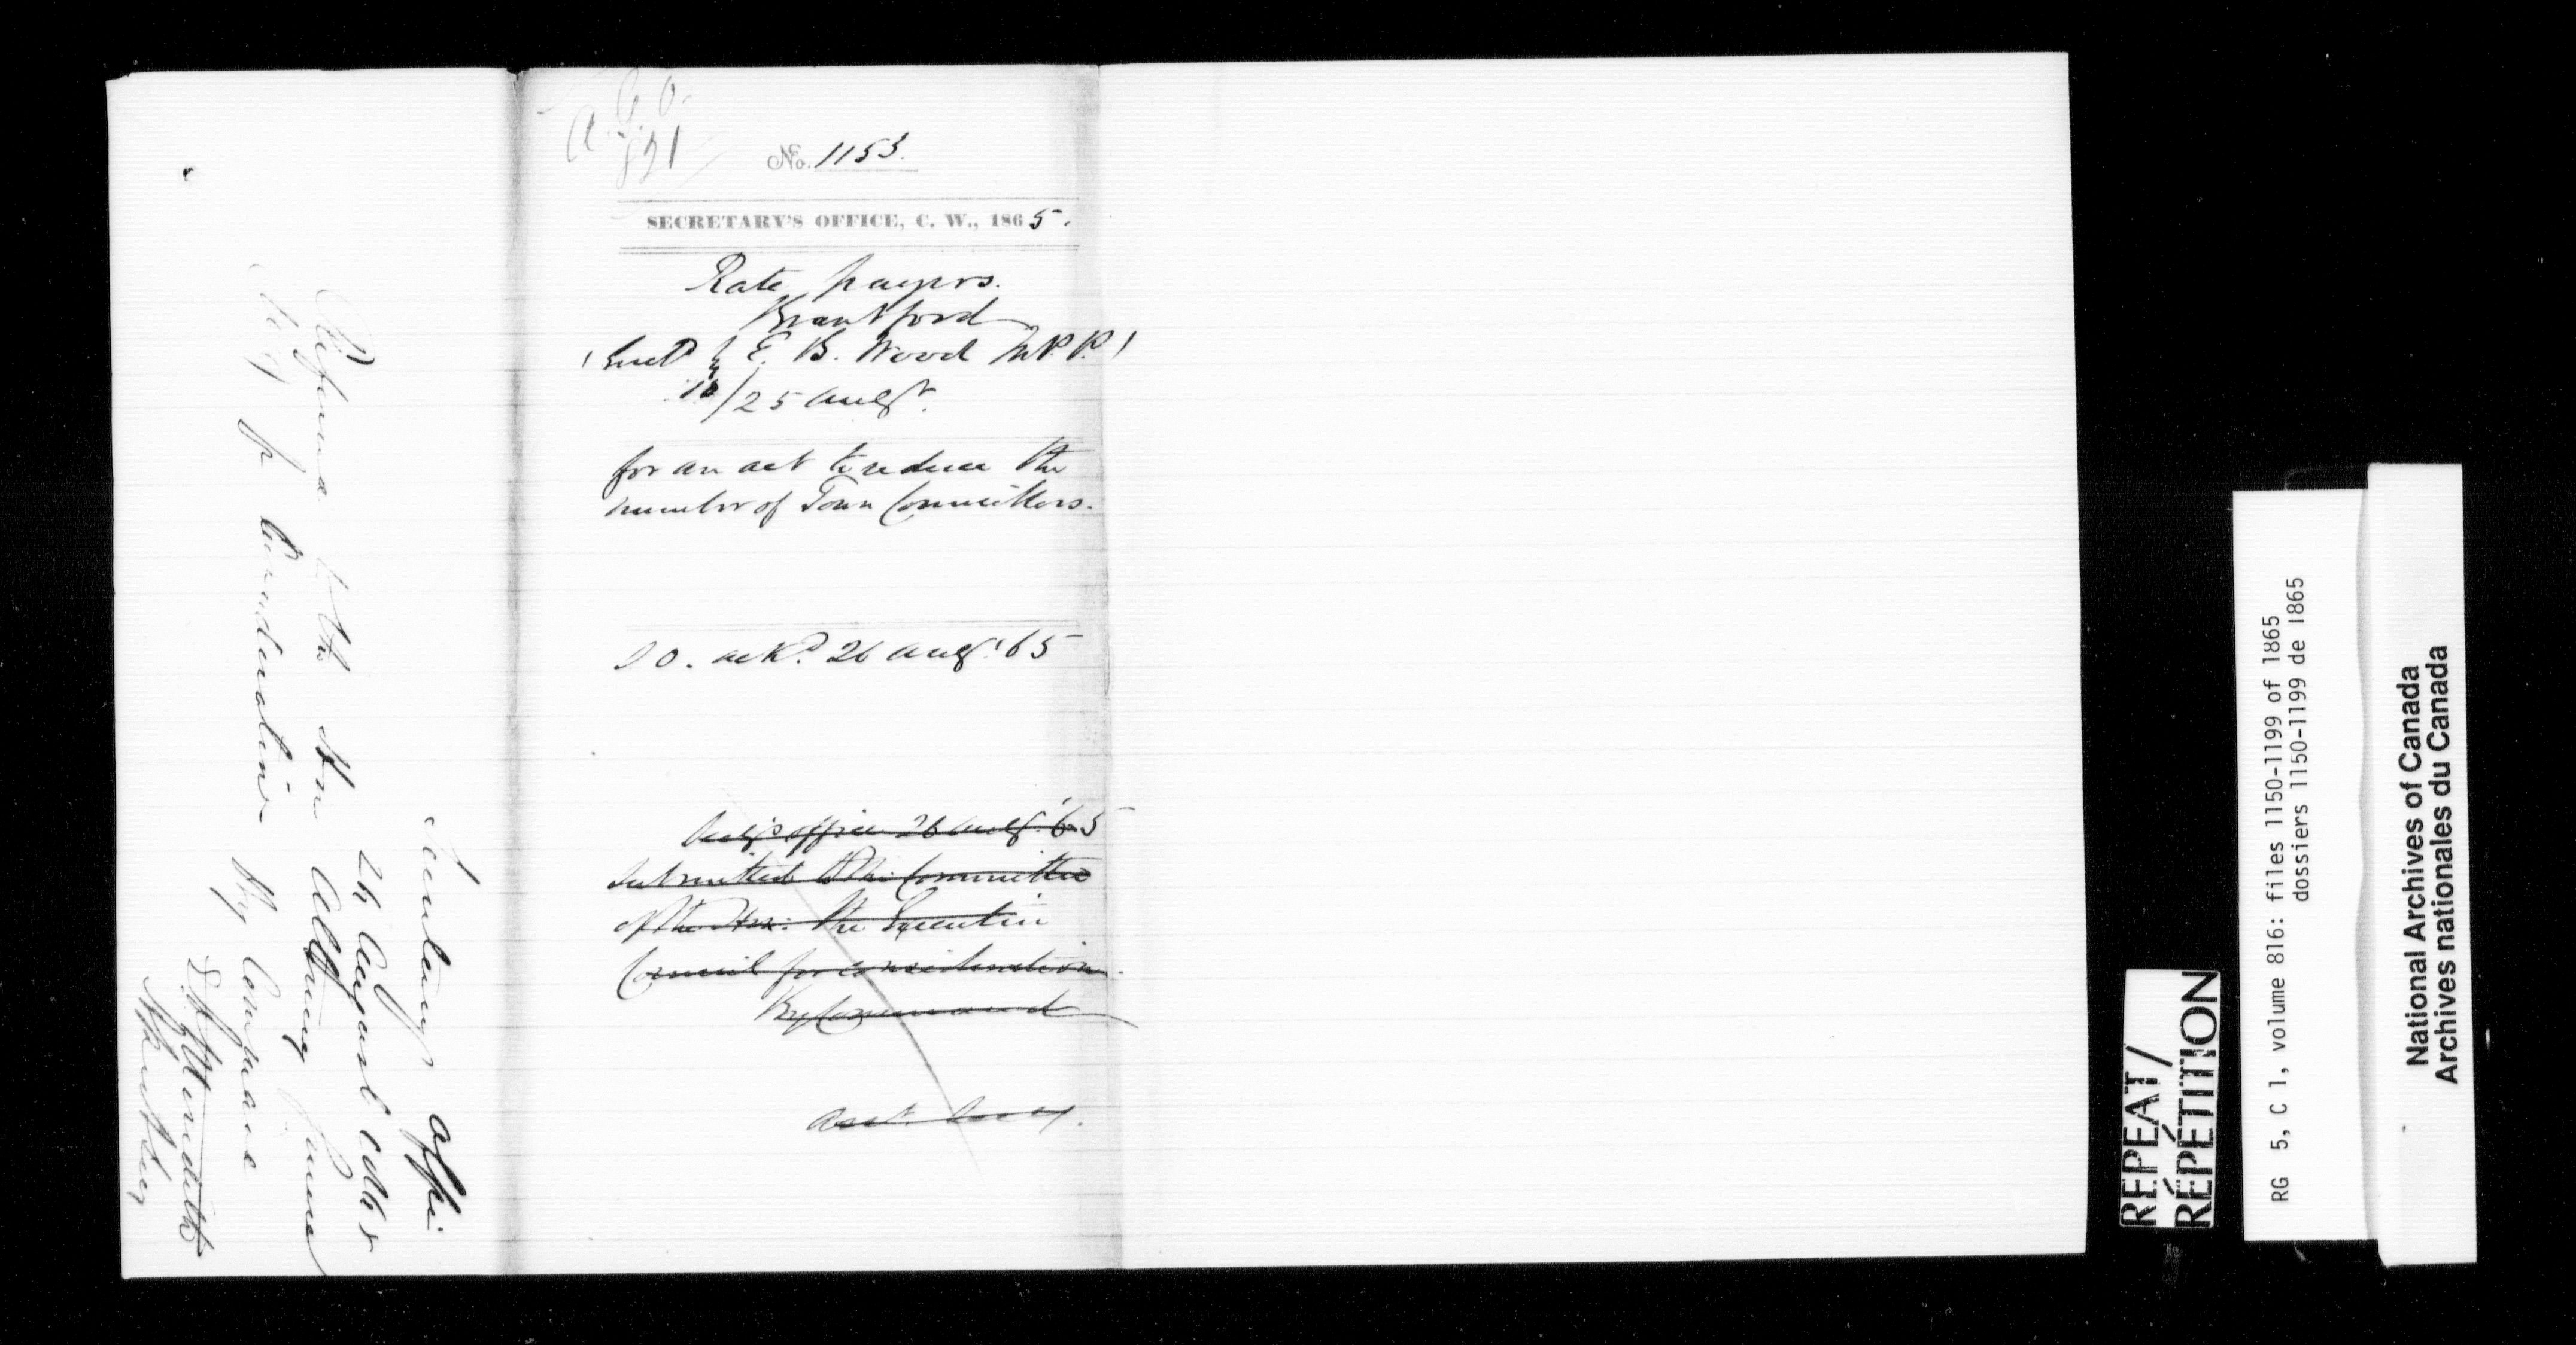 A. G. O.
821
No. 1153.
SECRETARY'S OFFICE, C. W., 1865.
Rate payers.
Brantford
(Encd by E. B. Wood M.P.P.)
/25 Augt.
for an act to reduce the
number of Town Councillors.
ackd. 26 Augt. 65
Secy's office 26 Augt. '65
Submitted to the Committee
of the Hon: the Executive
Council for consideration.
By Command
Asst. Secy.
Secretary's Office
26 August 1865
Referred to the Hon Attorney General
for Consideration
By Command
E. A. Meredith
Asst Secy
REPEAT/
RÉPÉTITION
RG 5, C 1, volume 816: files 1150-1199 of 1865
dossiers 1150-1199 de 1865
National Archives of Canada
Archives nationales du Canada